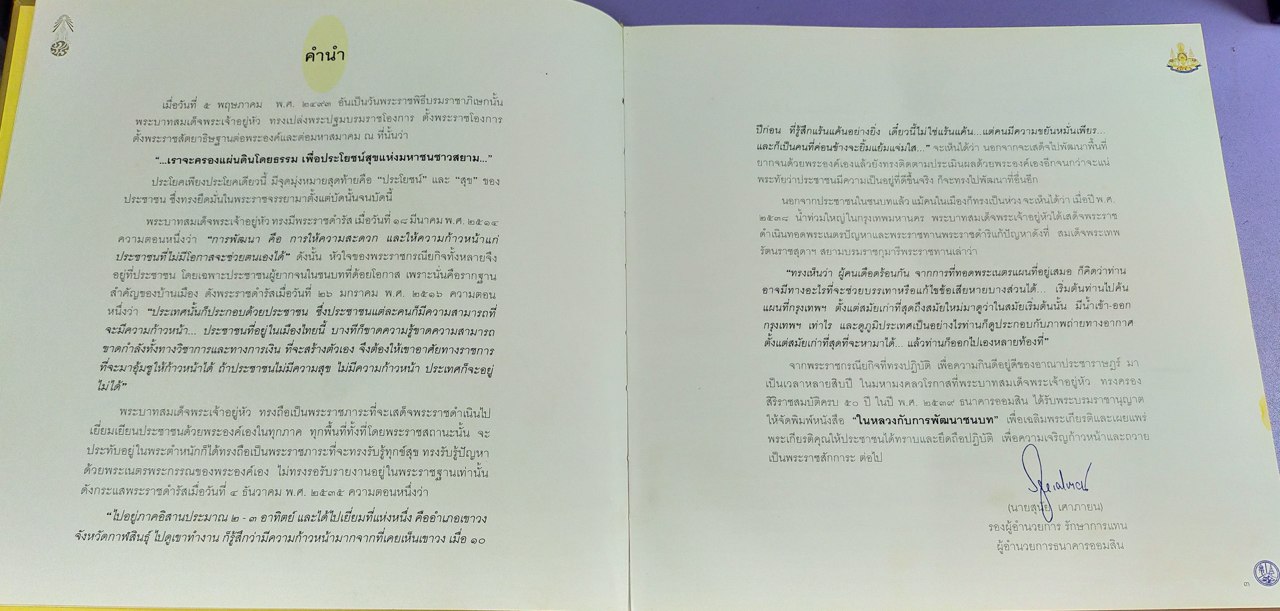 คำนำ
เมื่อวันที่ ๕ พฤษภาคม พ.ศ. ๒๔๙๓ อันเป็นวันพระราชพิธีบรมราชาภิเษกนั้น
พระบาทสมเด็จพระเจ้าอยู่หัว ทรงเปล่งพระปฐมบรมราชโองการ ตั้งพระราชโองการ
ตั้งพระราชสัตยาธิษฐานต่อพระองค์และต่อมหาสมาคม ณ ที่นั้นว่า
“...เราจะครองแผ่นดินโดยธรรม เพื่อประโยชน์สุขแห่งมหาชนชาวสยาม...”
ประโยคเพียงประโยคเดียวนี้ มีจุดมุ่งหมายสุดท้ายคือ “ประโยชน์” และ “สุข” ของ
ประชาชน ซึ่งทรงยึดมั่นในพระราชจรรยามาตั้งแต่บัดนั้นจนบัดนี้
พระบาทสมเด็จพระเจ้าอยู่หัว ทรงมีพระราชดำรัส เมื่อวันที่ ๑๘ มีนาคม พ.ศ. ๒๕๑๔
ความตอนหนึ่งว่า “การพัฒนา คือ การให้ความสะดวก และให้ความก้าวหน้าแก่
ประชาชนที่ไม่มีโอกาสจะช่วยตนเองได้” ดังนั้น หัวใจของพระราชกรณียกิจทั้งหลายจึง
อยู่ที่ประชาชน โดยเฉพาะประชาชนผู้ยากจนในชนบทที่ด้อยโอกาส เพราะนั่นคือรากฐาน
สำคัญของบ้านเมือง ดังพระราชดำรัสเมื่อวันที่ ๒๖ มกราคม พ.ศ. ๒๕๑๖ ความตอน
หนึ่งว่า “ประเทศนั้นก็ประกอบด้วยประชาชน ซึ่งประชาชนแต่ละคนก็มีความสามารถที่
จะมีความก้าวหน้า... ประชาชนที่อยู่ในเมืองไทยนี้ บางทีก็ขาดความรู้ขาดความสามารถ
ขาดกำลังทั้งทางวิชาการและทางการเงิน ที่จะสร้างตัวเอง จึงต้องให้เขาอาศัยทางราชการ
ที่จะมาอุ้มชูให้ก้าวหน้าได้ ถ้าประชาชนไม่มีความสุข ไม่มีความก้าวหน้า ประเทศก็จะอยู่
ไม่ได้”
พระบาทสมเด็จพระเจ้าอยู่หัว ทรงถือเป็นพระราชภาระที่จะเสด็จพระราชดำเนินไป
เยี่ยมเยียนประชาชนด้วยพระองค์เองในทุกภาค ทุกพื้นที่ทั้งที่โดยพระราชสถานะนั้น จะ
ประทับอยู่ในพระตำหนักก็ได้ทรงถือเป็นพระราชภาระที่จะทรงรับรู้ทุกข์สุข ทรงรับรู้ปัญหา
ด้วยพระเนตรพระกรรณของพระองค์เอง ไม่ทรงรอรับรายงานอยู่ในพระราชฐานเท่านั้น
ดังกระแสพระราชดำรัสเมื่อวันที่ ๔ ธันวาคม พ.ศ. ๒๕๓๕ ความตอนหนึ่งว่า
“ไปอยู่ภาคอิสานประมาณ ๒ - ๓ อาทิตย์ และได้ไปเยี่ยมที่แห่งหนึ่ง คืออำเภอเขาวง
จังหวัดกาฬสินธุ์ ไปดูเขาทำงาน ก็รู้สึกว่ามีความก้าวหน้ามากจากที่เคยเห็นเขาวง เมื่อ ๑๐
ปีก่อน ที่รู้สึกแร้นแค้นอย่างยิ่ง เดี๋ยวนี้ไม่ใช่แร้นแค้น...แต่คนมีความขยันหมั่นเพียร...
และก็เป็นคนที่ค่อนข้างจะยิ้มแย้มแจ่มใส...” จะเห็นได้ว่า นอกจากจะเสด็จไปพัฒนาพื้นที่
ยากจนด้วยพระองค์เองแล้วยังทรงติดตามประเมินผลด้วยพระองค์เองอีกจนกว่าจะแน่
พระทัยว่าประชาชนมีความเป็นอยู่ที่ดีขึ้นจริง ก็จะทรงไปพัฒนาที่อื่นอีก
นอกจากประชาชนในชนบทแล้ว แม้คนในเมืองก็ทรงเป็นห่วง จะเห็นได้ว่า เมื่อปี พ.ศ.
๒๕๓๘ น้ำท่วมใหญ่ในกรุงเทพมหานคร พระบาทสมเด็จพระเจ้าอยู่หัวได้เสด็จพระราช
ดำเนินทอดพระเนตรปัญหาและพระราชทานพระราชดำริแก้ปัญหาดังที่ สมเด็จพระเทพ
รัตนราชสุดาฯ สยามบรมราชกุมารีพระราชทานเล่าว่า
“ทรงเห็นว่า ผู้คนเดือดร้อนกัน จากการที่ทอดพระเนตรแผนที่อยู่เสมอ ก็คิดว่าท่าน
อาจมีทางอะไรที่จะช่วยบรรเทาหรือแก้ไขข้อเสียหายบางส่วนได้... เริ่มต้นท่านไปค้น
แผนที่กรุงเทพฯ ตั้งแต่สมัยเก่าที่สุดถึงสมัยใหม่มาดูว่าในสมัยเริ่มต้นนั้น มีน้ำเข้า-ออก
กรุงเทพฯ เท่าไร และดูภูมิประเทศเป็นอย่างไรท่านก็ดูประกอบกับภาพถ่ายทางอากาศ
ตั้งแต่สมัยเก่าที่สุดที่จะหามาได้... แล้วท่านก็ออกไปเองหลายท้องที่”
จากพระราชกรณียกิจที่ทรงปฏิบัติ เพื่อความกินดีอยู่ดีของอาณาประชาราษฎร์ มา
เป็นเวลาหลายสิบปี ในมหามงคลวโรกาสที่พระบาทสมเด็จพระเจ้าอยู่หัว ทรงครอง
สิริราชสมบัติครบ ๕๐ ปี ในปี พ.ศ. ๒๕๓๙ ธนาคารออมสิน ได้รับพระบรมราชานุญาต
ให้จัดพิมพ์หนังสือ “ในหลวงกับการพัฒนาชนบท” เพื่อเฉลิมพระเกียรติและเผยแพร่
พระเกียรติคุณให้ประชาชนได้ทราบและยึดถือปฏิบัติ เพื่อความเจริญก้าวหน้าและถวาย
เป็นพระราชสักการะ ต่อไป
(นายสุนัย เศาภายน)
รองผู้อำนวยการ รักษาการแทน
ผู้อำนวยการธนาคารออมสิน
๓